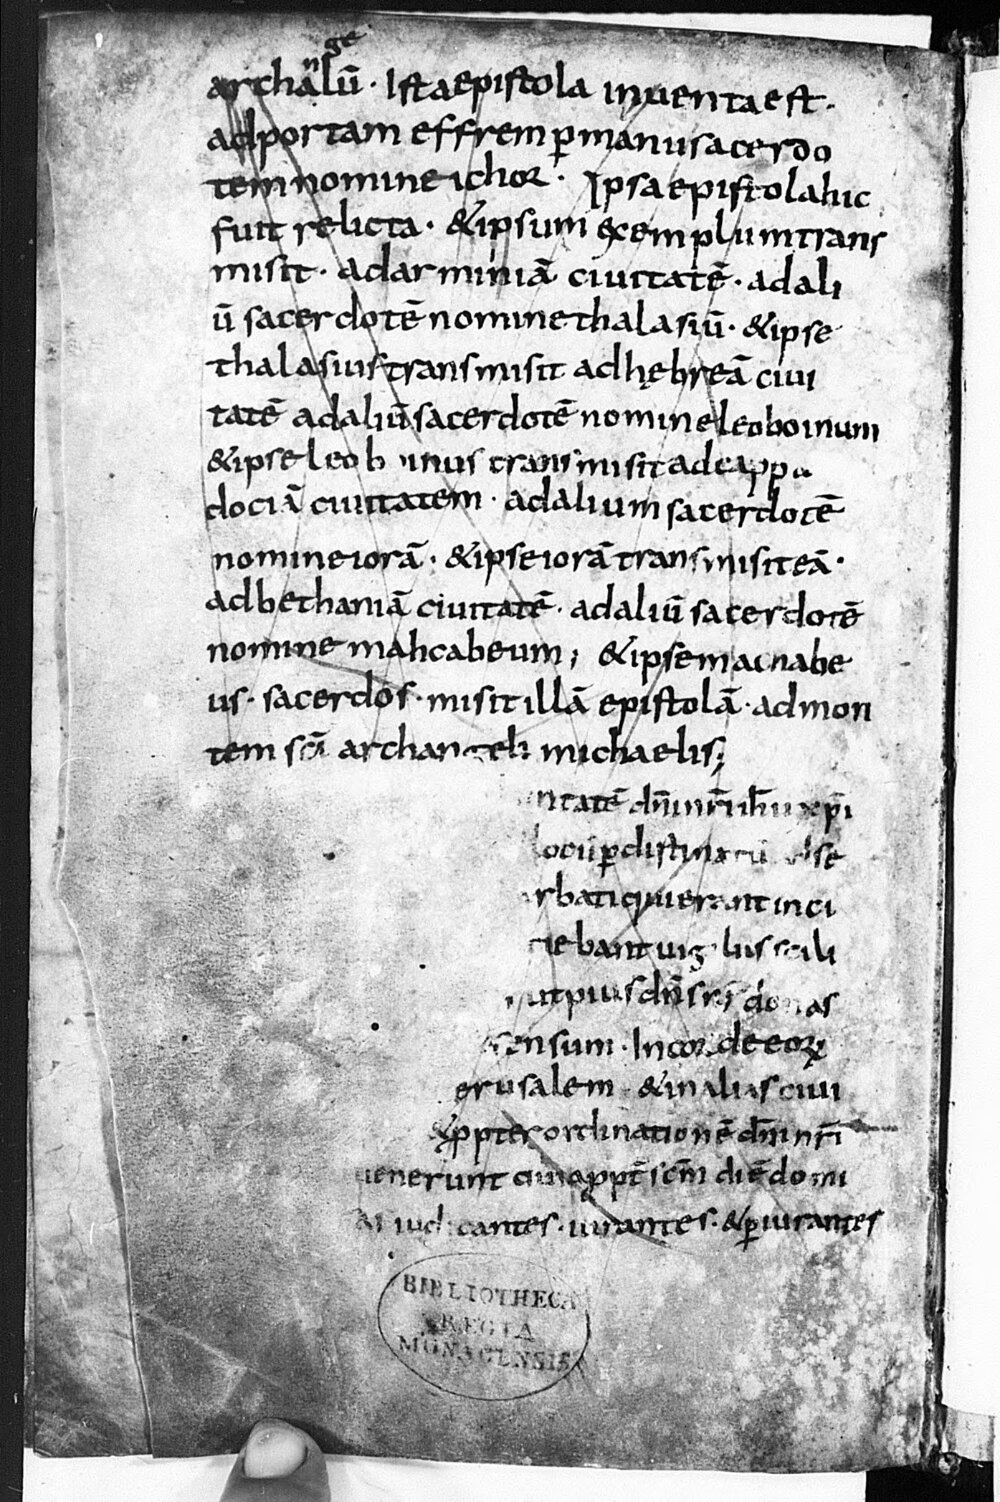 archangelū · Ista epistola inuenta est ·
ad portam effrem ꝑ manu sacerdo
tem nomine ichor · Ipsa epistola hic
fuit relicta · & ipsum exemplum trans
misit · ad arminiā ciuitatē · ad ali
ū sacerdotē nomine thalasiū · & ipse
thalasius transmisit ad hębreā ciui
tatē ad aliū sacerdotē nomine leoboinum
& ipse leob inus transmisit ad cappa
dociā ciuitatem · ad alium sacerdotē
nomine iorā · & ipse iorā transmisit eā ·
ad bethaniā ciuitatē · ad aliū sacerdotē
nomine mahcabeum ; & ipse macnabe
us · sacerdos · misit illā epistolā · ad mon
tem scī archangeli michaelis ;
ntatē dn̄i nr̄i ih̄u xp̄i
locū ꝑdistinatū
rbati qui erant in ci
iebant
ut pius dn̄s
sensum · In corde eoꝝ
erusalem · & in alias ciui
& ꝓpter ordinationē dn̄i nr̄i
uenerunt scm̄ diē domi
iudicantes · iurantes · & ꝑiurantes
BIBLIOTHECA
REGIA
MONACENSIS